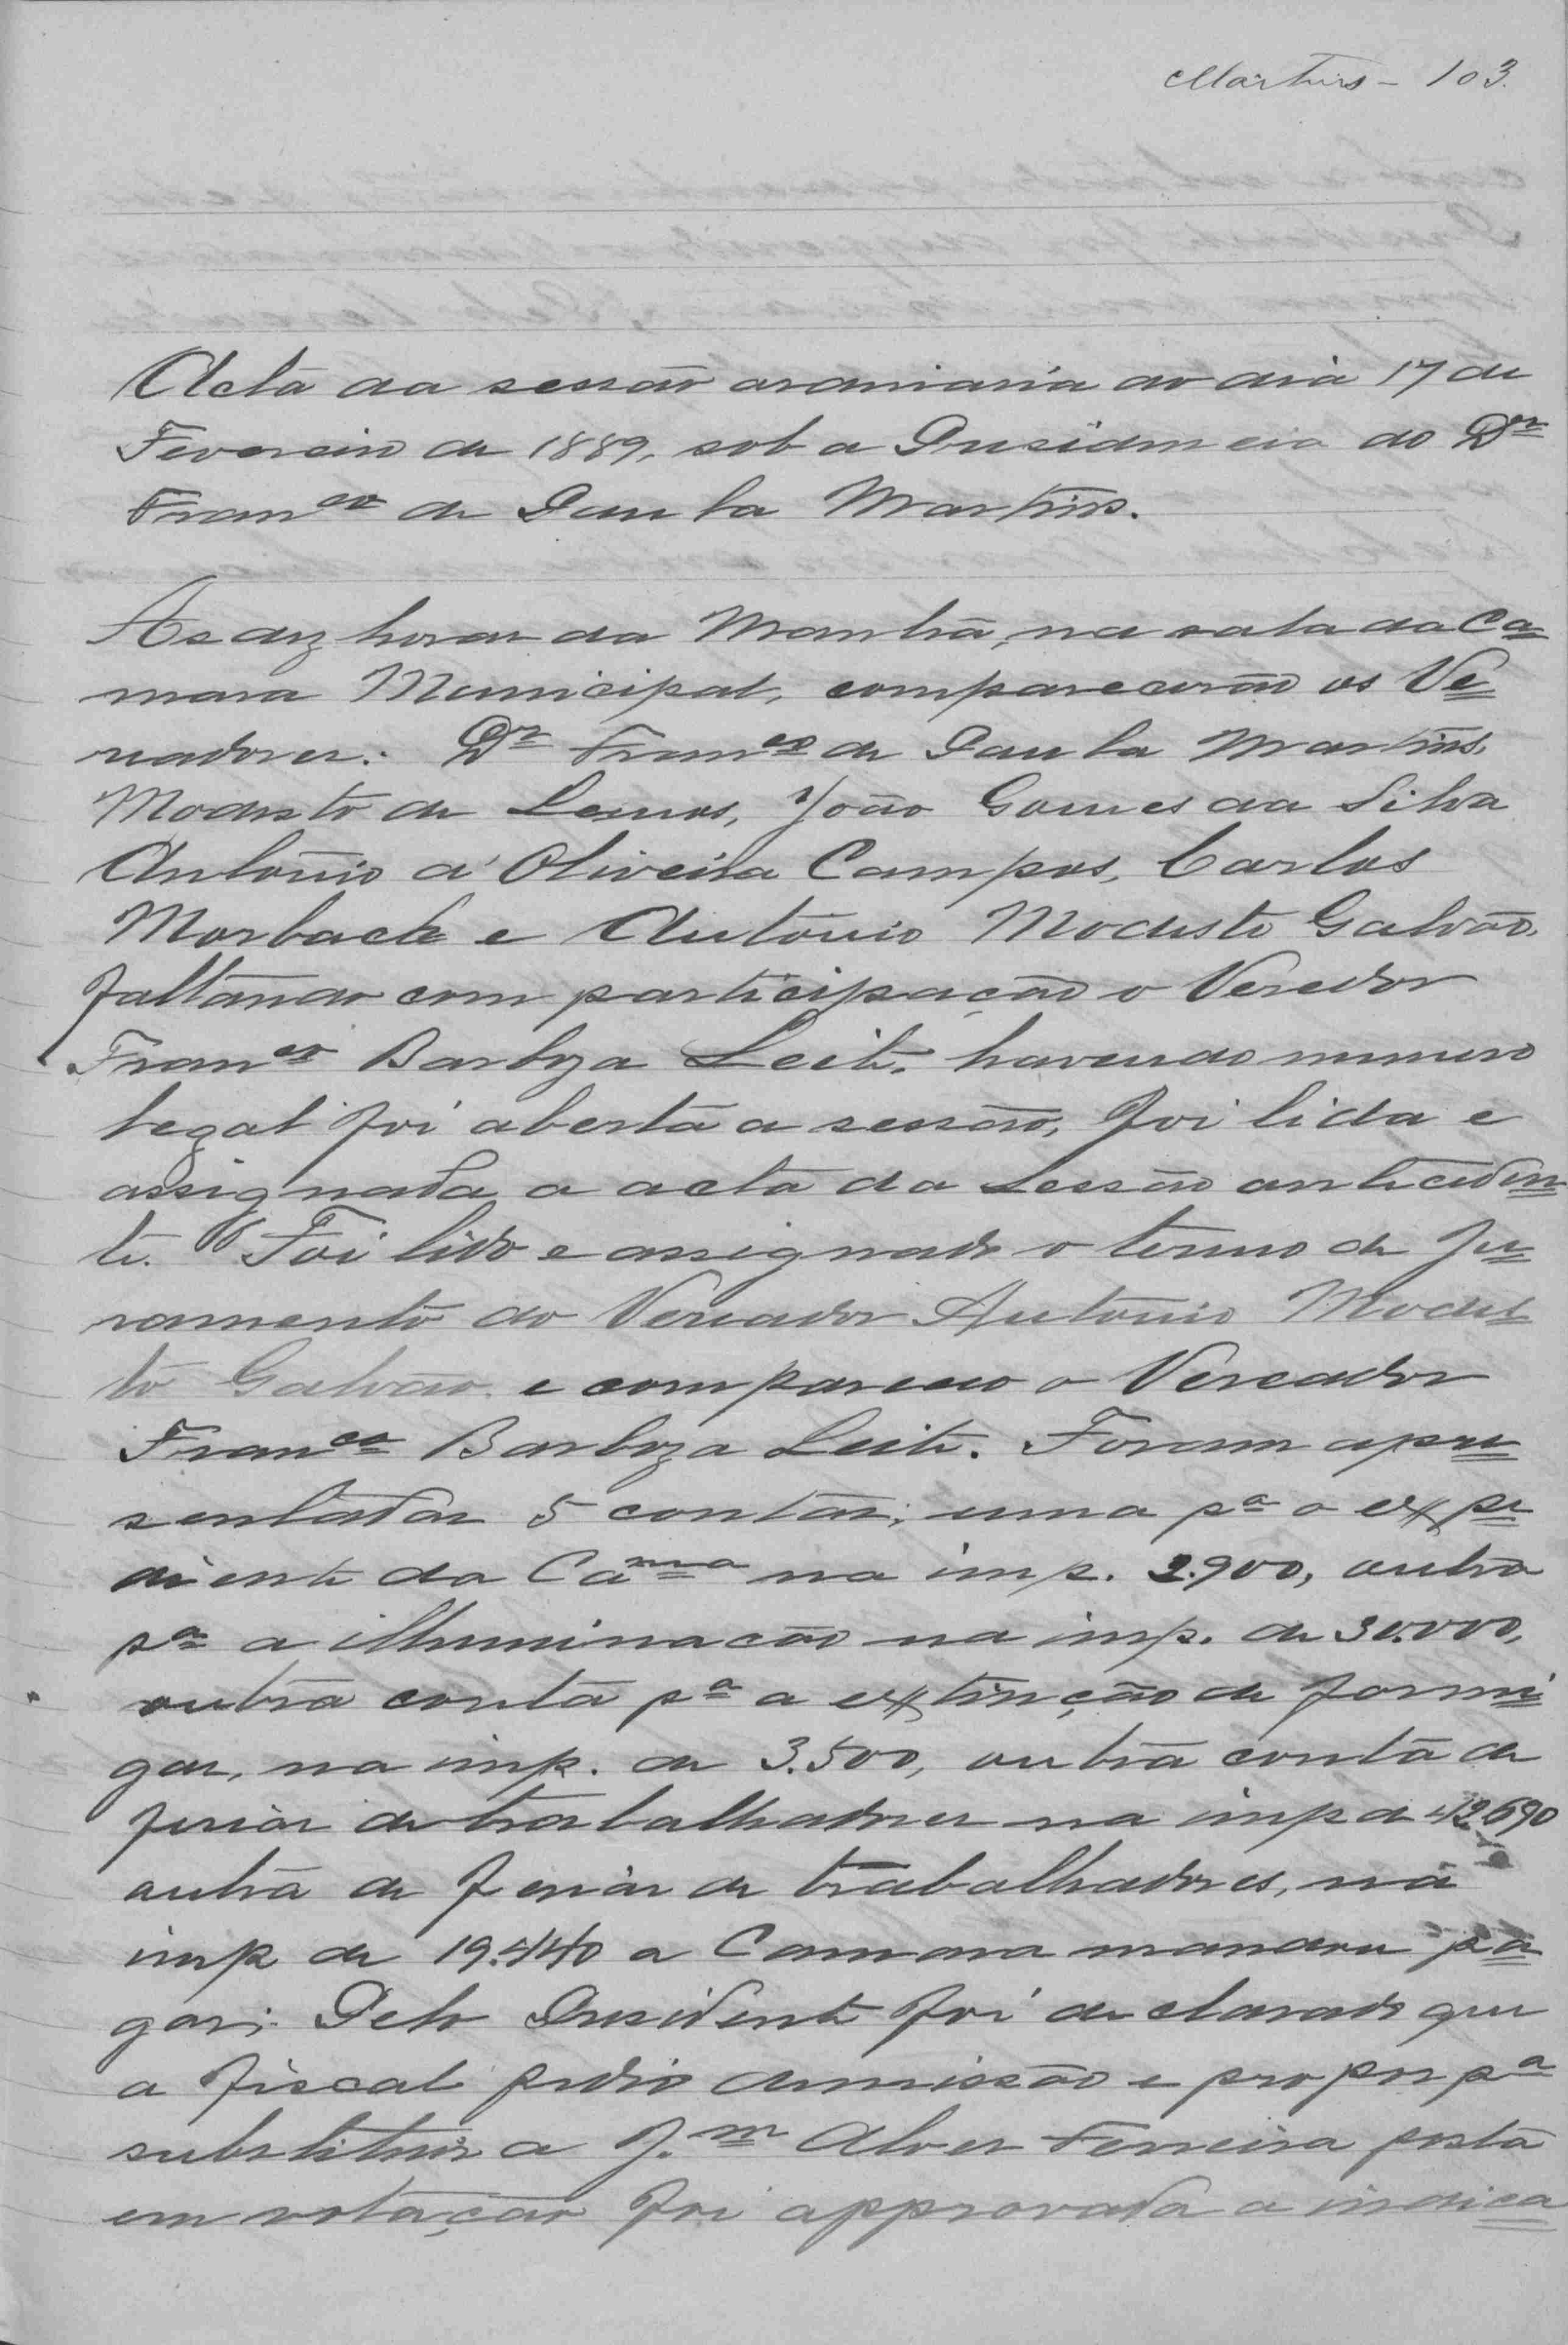 Martins - 103.
Acta da sessão ordiniaria do dia 17 de
Fevereiro de 1889, sob a Presidencia do Dr
Franco de Paula Martins.
As dez horas da Manhã, na sala da Ca=
mara Municipal, comparecerão os Ve=
readores: Dr Franco de Paula Martins,
Modesto de Lemos, João Gomes da Silva
Antonio d'Oliveira Campos, Carlos
Morbach e Antonio Modesto Galvão,
faltando com participação o Veredor
Franco Barboza Leite, havendo numero
legal foi aberta a sessão, foi lida e
assignada a acta da Sessão anteceden=
te. Foi lido e assignado o termo de Ju=
ramento do Vereador Antonio Modes=
to Galvão e compareceo o Vereador
Franco Barboza Leite. Foram apre=
sentadas 5 contas; uma pa o expe=
diente da Camra na imp. 2.900, outra
pa a illuminacão na imp. de 30.000,
outra conta pa a extinção de formi=
gas, na imp. de 3.500, outra conta de
ferias de trabalhadores na imp de 42.690
outra de ferias de trabalhadores, na
imp de 19.440 a Camara mandou pa=
gar; Pelo Presidente foi declarado que
o fiscal pedio demissão e propos pa
substituir a J.m Alves Ferreira posta
em votação foi approvada a indica=